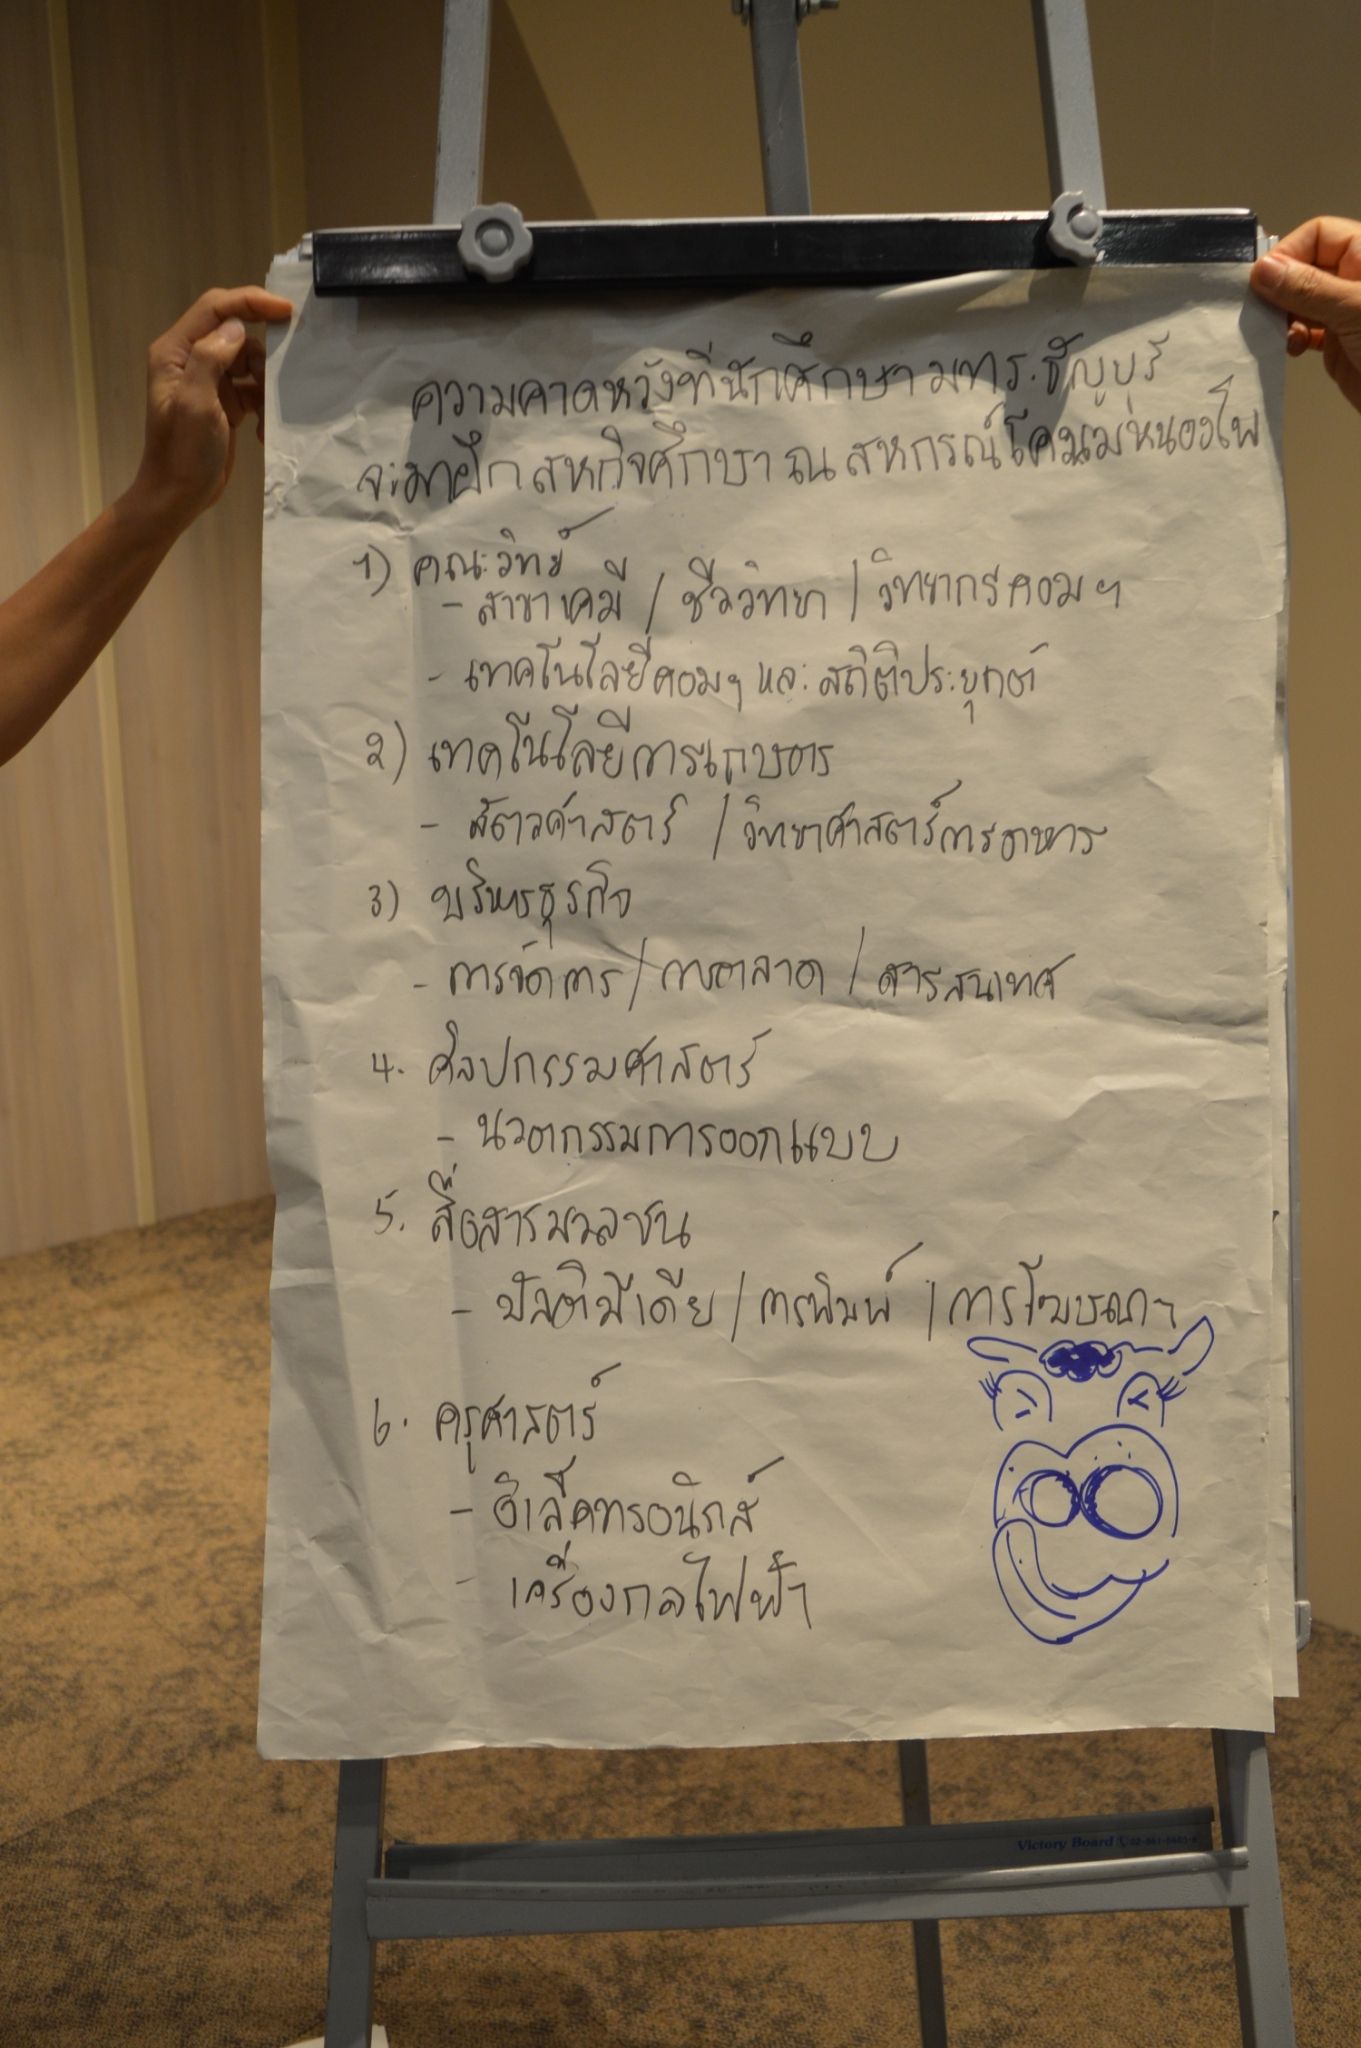 ความคาดหวังที่นักศึกษา มทร.ธัญบุรี
จะมาฝึก สหกิจศึกษา ณ สหกรณ์โคนมหนองโพ
1) คณะวิทย์
- สาขาเคมี / ชีววิทยา / วิทยาการคอมฯ
- เทคโนโลยีคอมฯ และ สถิติประยุกต์
2) เทคโนโลยีการเกษตร
- สัตวศาสตร์ / วิทยาศาสตร์การอาหาร
3) บริหารธุรกิจ
- การจัดการ / การตลาด / สารสนเทศ
4. ศิลปกรรมศาสตร์
- นวตกรรมการออกแบบ
5. สื่อสารมวลชน
- มัลติมีเดีย / การพิมพ์ / การโฆษณาฯ
6. ครุศาสตร์
- อิเล็คทรอนิกส์
- เครื่องกลไฟฟ้า
Victory Board